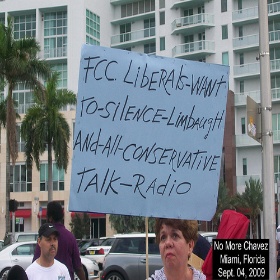 FCC LIBERALS-WANT
TO-SILENCE-Limbaugh
AND-All-CONSERVATIVE
TALK-RADIO
No More Chavez
Miami, Florida
Sept. 04, 2009